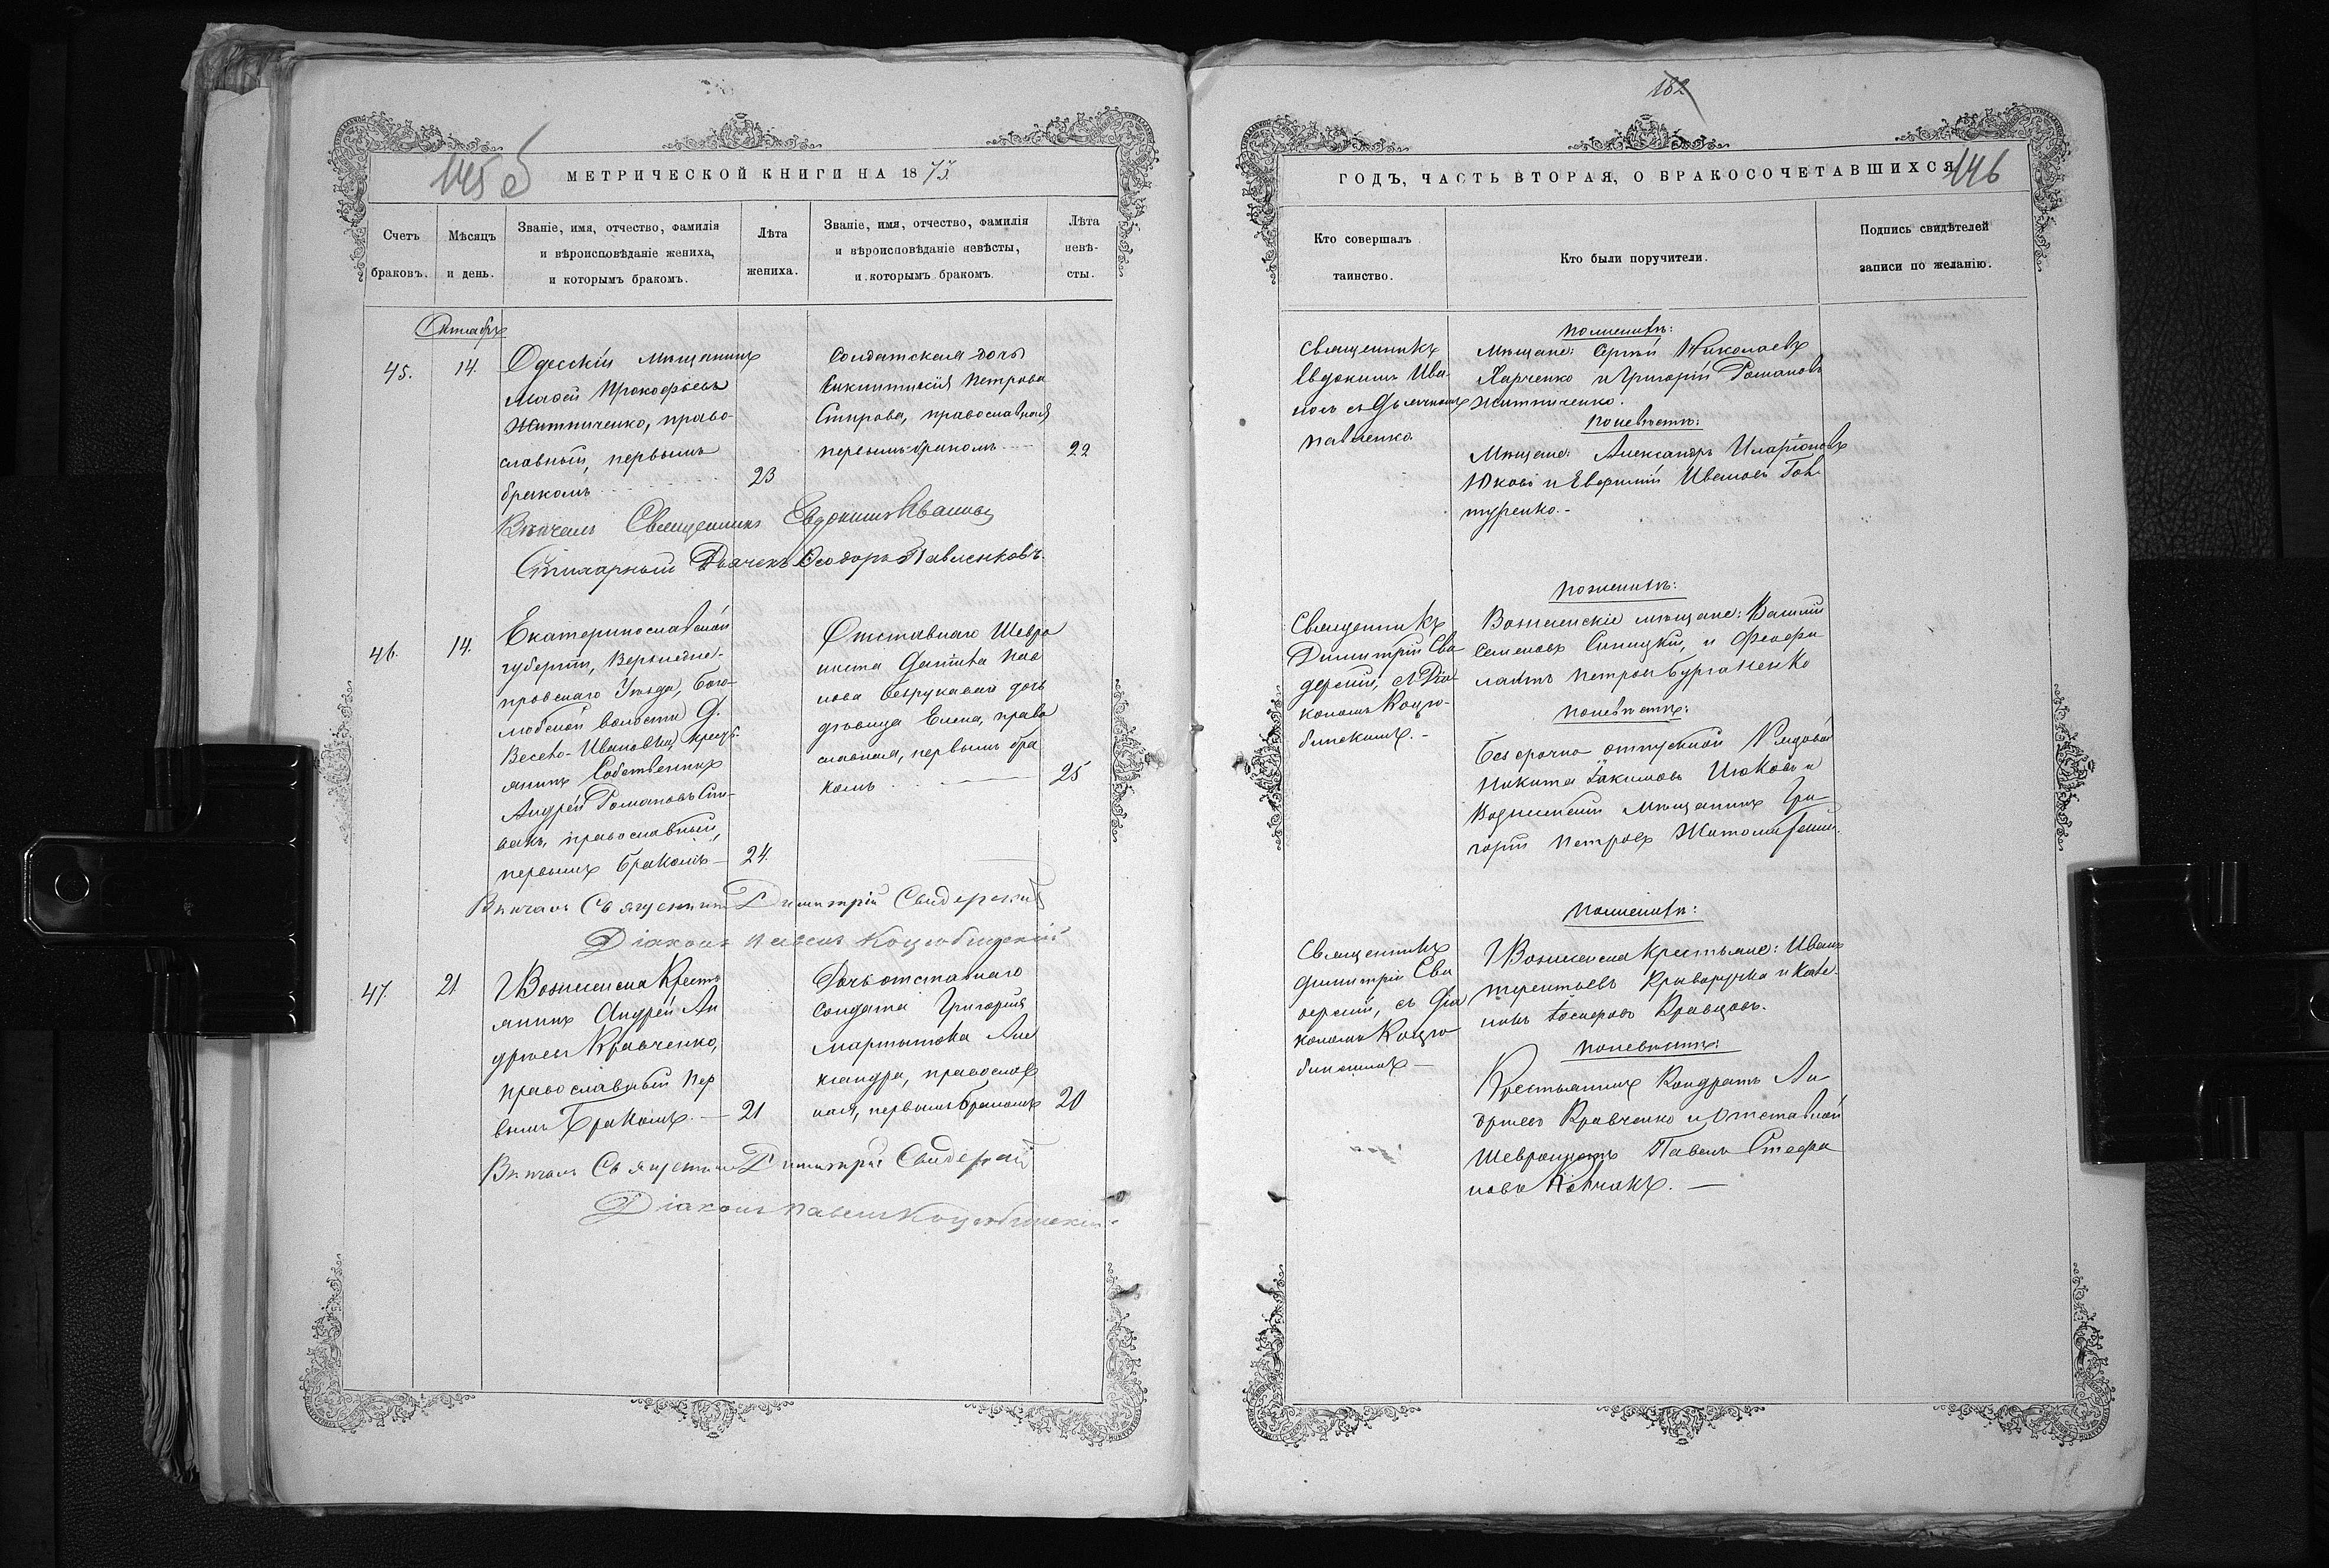 145 б
МЕТРИЧЕСКОЙ КНИГИ НА 1873
Счетъ браковъ.
Мѣсяцъ и день.
Званіе, имя, отчество, фамилія
и вѣроисповѣданіе жениха,
и которымъ бракомъ.
Лѣта жениха.
Званіе, имя, отчество, фамилія
и вѣроисповѣданіе невѣсты,
и которымъ бракомъ.
Лѣта невѣ-
сты.
Октябрь
45.
14.
Одесскій мѣщанинъ
Прокофьевъ
Житниченко, право-
славный, первымъ
бракомъ
23
Солдатская дочь
Петрова
православная
первымъ бракомъ
22
Вѣнчалъ Священникъ Евдокимъ Ивановъ
Стихарный Дьячекъ Ѳеодоръ Павленковъ.
46.
14.
Екатеринославской
губерніи, Верхнедне-
провскаго Уѣзда, Бого-
любской волости Д.
Весело-Ивановки, крестъ-
янинъ Собственникъ
Андрей Романовъ Спи-
вакъ, православный,
первымъ бракомъ
24.
Отставнаго Шевро
ниста Даніила Пав
лова Безрукаваго дочь
дѣвица Елена, право
славная, первымъ бра
комъ
25
Вѣнчалъ Священникъ Димитрій Свидерскій
Діаконъ Павелъ Коцюбинскій
47.
21
Г Вознесенска Крестъ
янинъ Андрей Ан
дреевъ Кравченко,
православный пер
вымъ Бракомъ.
21
Дочь отставнаго
Солдата Григорія
Мартынова Але
ксандра, православ
ная, первымъ бракомъ
20
Вѣнчалъ Священникъ Димитрій Свидерскій
Діаконъ Павелъ Коцюбинскій
182
146
ГОДЪ, ЧАСТЬ ВТОРАЯ, О БРАКОСОЧЕТАВШИХСЯ
Кто совершалъ
таинство.
Кто были поручители.
Подпись свидѣтелей
записи по желанію.
Священникъ
Евдокимъ Ива-
новъ съ Дьячкомъ
Павленко.
По женихѣ:
Мѣщане: Сергѣй Николаевъ
Харченко и Григорій Романовъ
Житниченко.
По невѣстѣ:
Мѣщане: Александръ Иларіоновъ
Юковъ и Ивановъ Гон
туренко.
Священникъ
Димитрій Сви
дерскій, съ Діа-
кономъ Коцю-
бинскимъ.
По женихѣ:
Вознесенскіе мѣщане: Василій
Семеновъ Синицкій, и Феофи
лактъ Петровъ Бурганенко
По невѣстѣ:
Безсрочно отпускной Рядовой
Никита Іакимовъ и
Вознесенскій мѣщанинъ Гри
горій Петровъ Житомирскій.
Священникъ
Димитрій Сви
дерскій, съ Діа
кономъ Коцю
бинскимъ
По женихѣ:
Г Вознесенска Крестьяне: Иванъ
Терентьевъ Криворучка и
Кравцовъ.
По невѣстѣ:
Крестьянинъ Кондратъ Ан
дреевъ Кравченко и отставной
Шевронистъ Павелъ Стефа
новъ